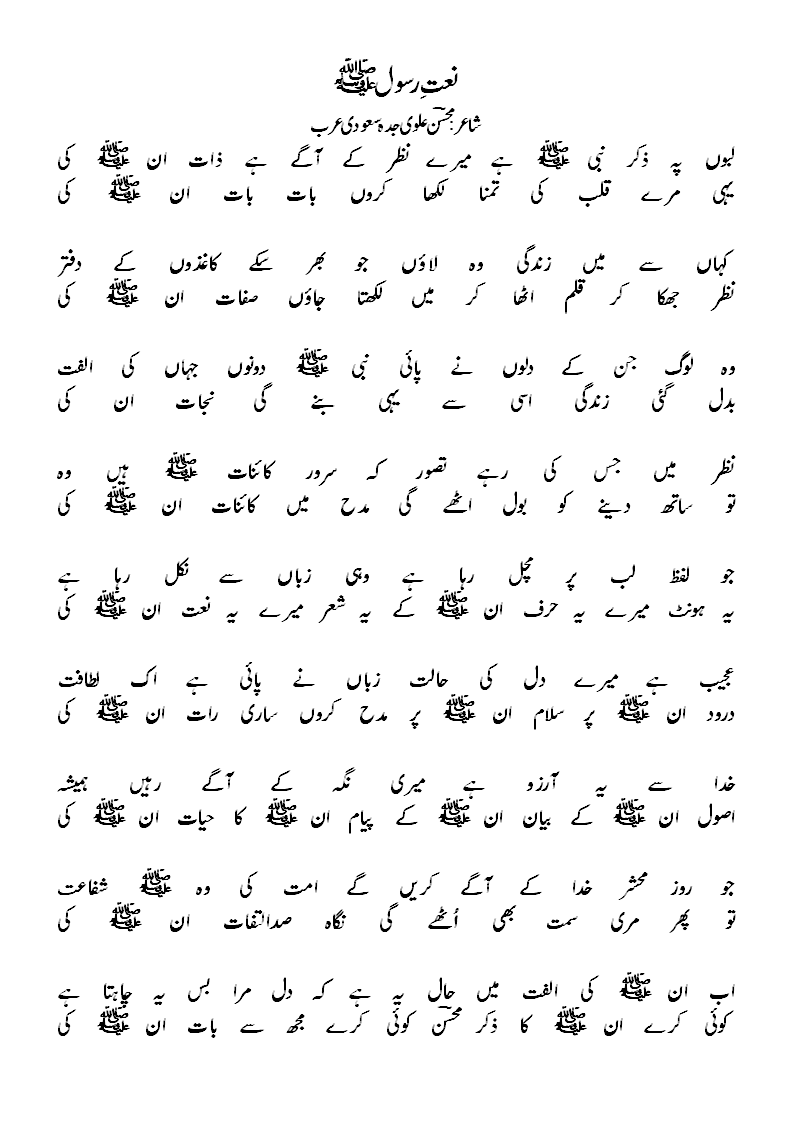 نعتِ رسول ﷺ
شاعر: محسنؔ علوی جدہ سعودی عرب
لبوں پہ ذکر نبی ﷺ ہے میرے نظر کے آگے ہے ذات ان ﷺ کی
یہی مرے قلب کی تمنا لکھا کروں بات بات ان ﷺ کی
کہاں سے میں زندگی وہ لاؤں جو بھر سکے کاغذوں کے دفتر
نظر جھکا کر قلم اٹھا کر میں لکھتا جاؤں صفات ان ﷺ کی
وہ لوگ جن کے دلوں نے پائی نبی ﷺ دونوں جہاں کی الفت
بدل گئی زندگی اسی سے یہی بنے گی نجات ان کی
نظر میں جس کی رہے تصور کہ سرور کائنات ﷺ ہیں وہ
تو ساتھ دینے کو بول اٹھے گی مدح میں کائنات ان ﷺ کی
جو لفظ لب پر مچل رہا ہے وہی زباں سے نکل رہا ہے
یہ ہونٹ میرے یہ حرف ان ﷺ کے یہ شعر میرے یہ نعت ان ﷺ کی
عجیب ہے میرے دل کی حالت زباں نے پائی ہے اک لطافت
درود ان ﷺ پر سلام ان ﷺ پر مدح کروں ساری رات ان ﷺ کی
خدا سے یہ آرزو ہے میری نگہ کے آگے رہیں ہمیشہ
اصول ان ﷺ کے بیان ان ﷺ کے پیام ان ﷺ کا حیات ان ﷺ کی
جو روز محشر خدا کے آگے کریں گے امت کی وہ ﷺ شفاعت
تو پھر مری سمت بھی اُٹھے گی نگاہ صدالتفات ان ﷺ کی
اب ان ﷺ کی الفت میں حال یہ ہے کہ دل مرا بس یہ چاہتا ہے
کوئی کرے ان ﷺ کا ذکر محسنؔ کوئی کرے مجھ سے بات ان ﷺ کی